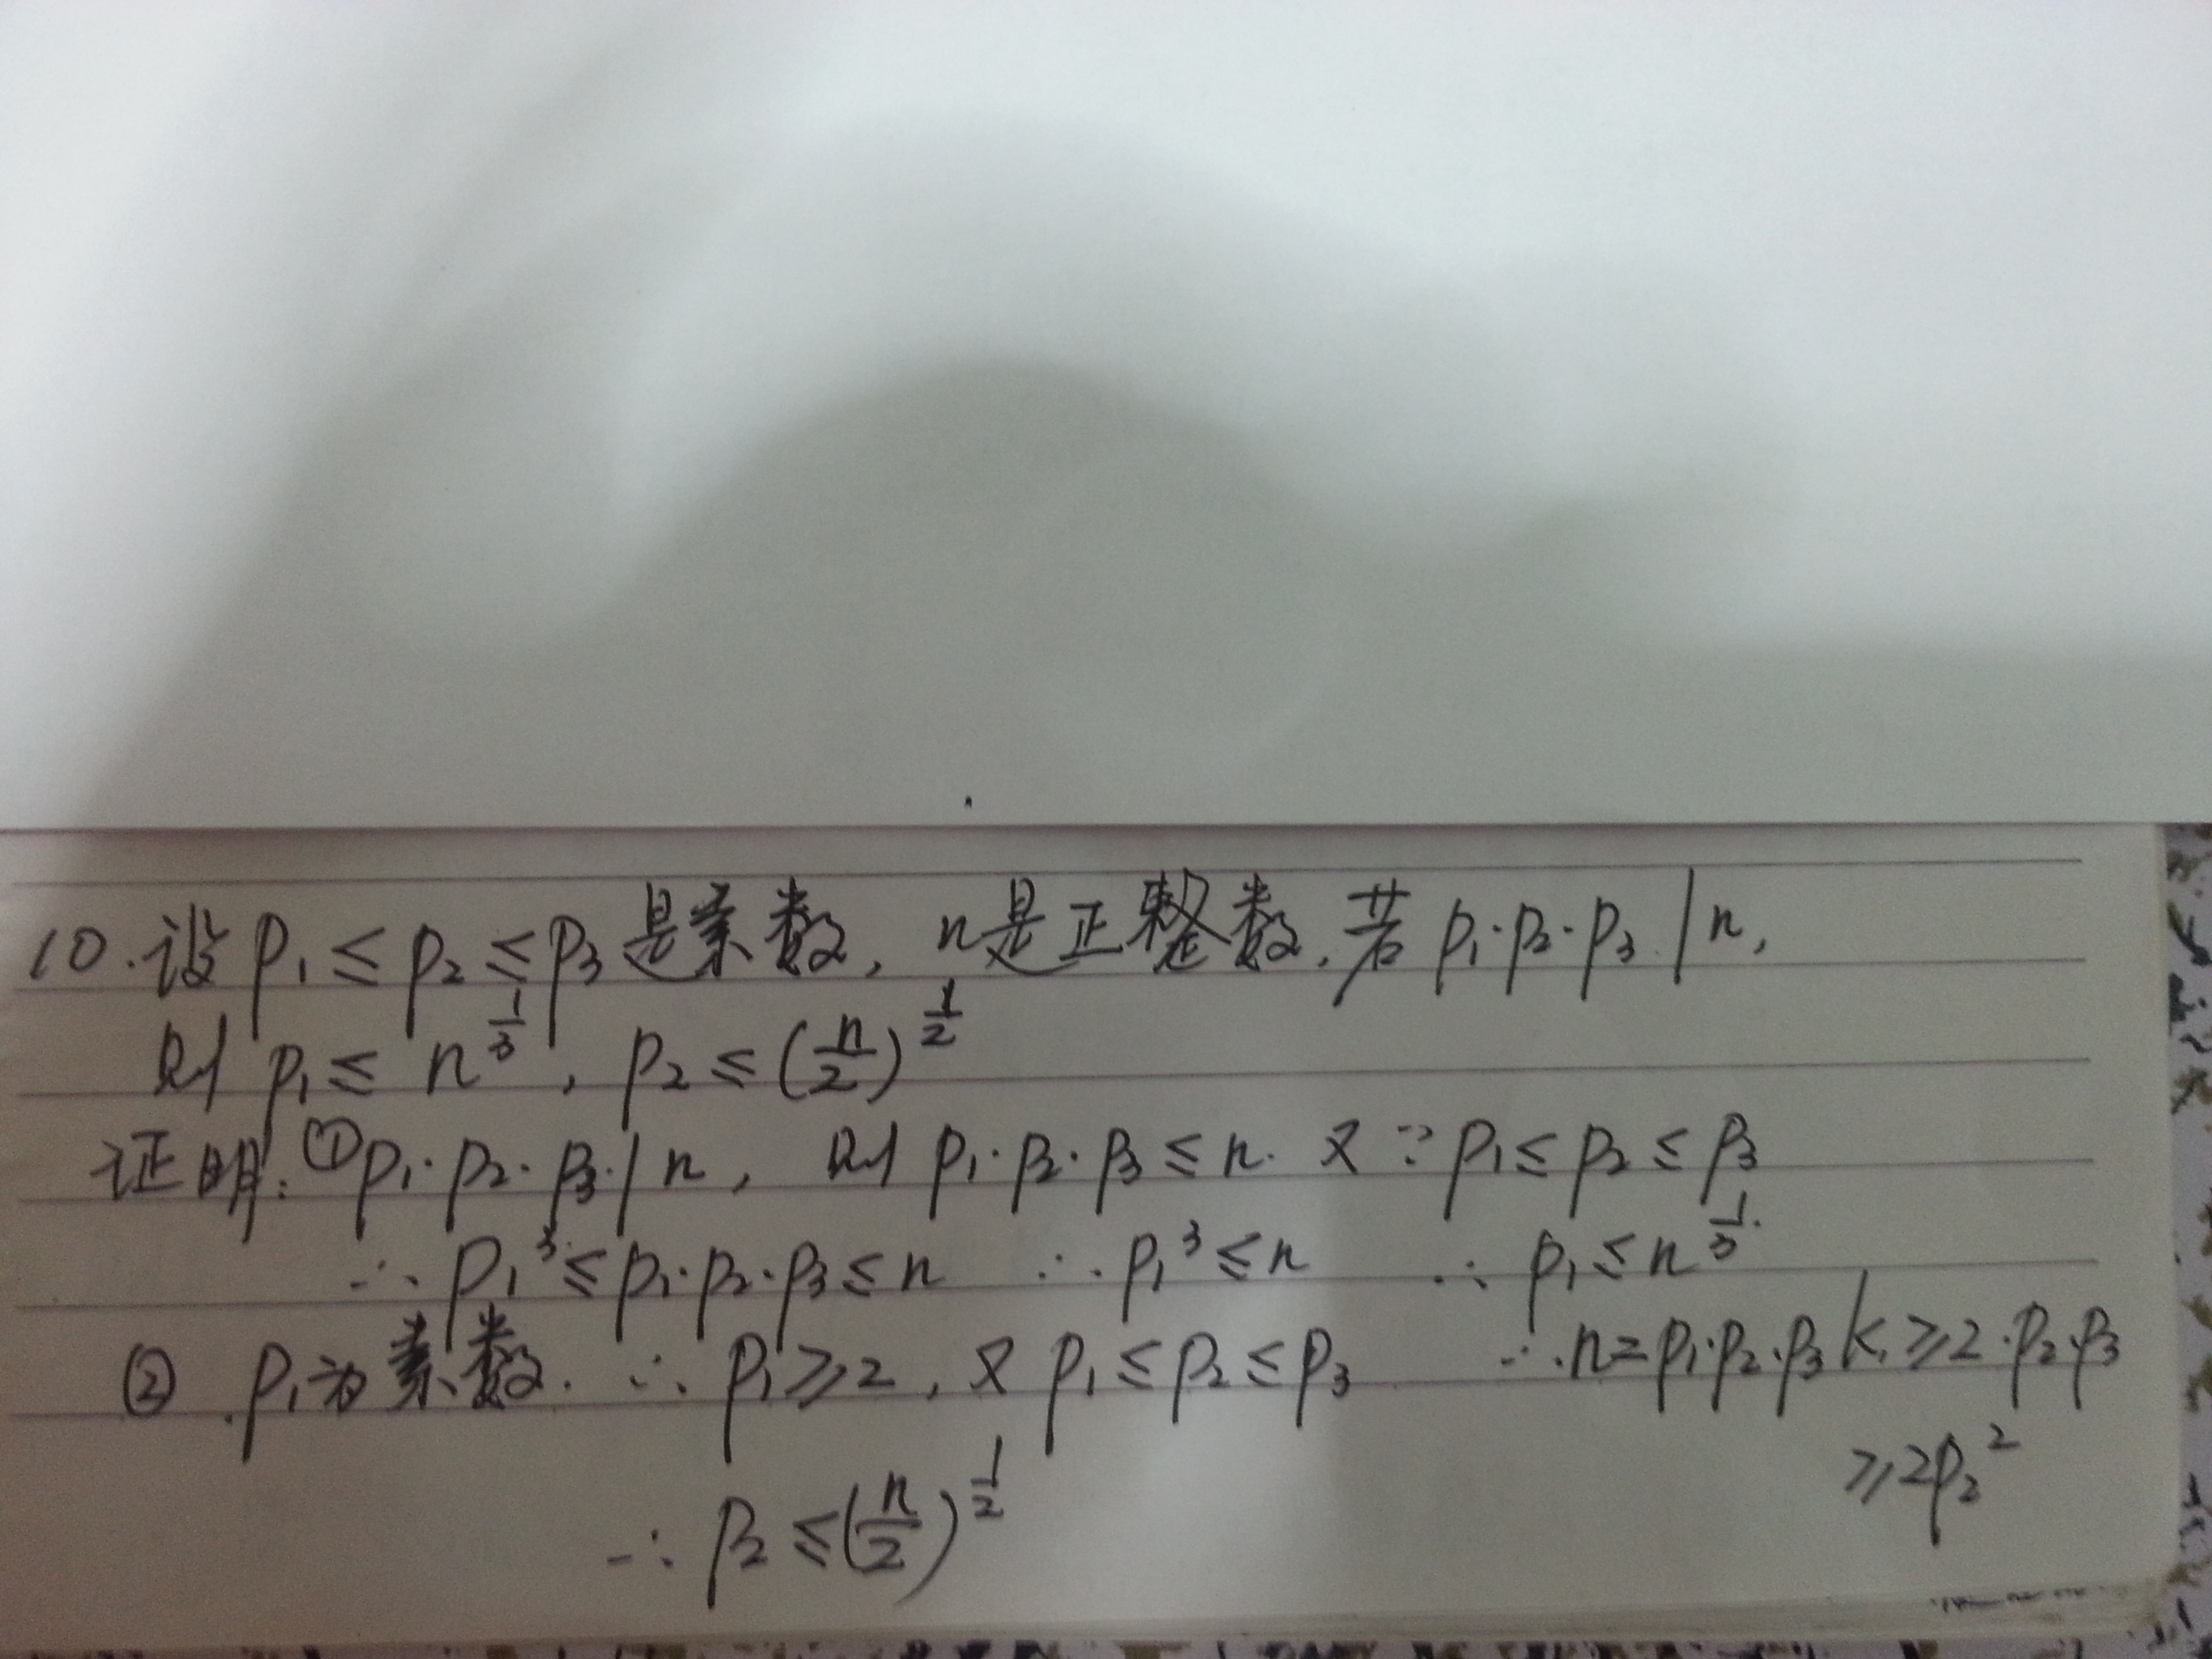 10.设 p₁ ≤ p₂ ≤ p₃ 是素数, n是正整数,若 p₁·p₂·p₃ | n,
则 p₁ ≤ n^{1/3}, p₂ ≤ (n/2)^{1/2}
证明: ① p₁·p₂·p₃ | n, 则 p₁·p₂·p₃ ≤ n. 又∵ p₁ ≤ p₂ ≤ p₃
∴ p₁³ ≤ p₁·p₂·p₃ ≤ n ∴ p₁³ ≤ n ∴ p₁ ≤ n^{1/3}
② p₁为素数. ∴ p₁ ≥ 2, 又 p₁ ≤ p₂ ≤ p₃ ∴ n = p₁·p₂·p₃ k, ≥ 2·p₂·p₃
≥ 2p₂²
∴ p₂ ≤ (n/2)^{1/2}